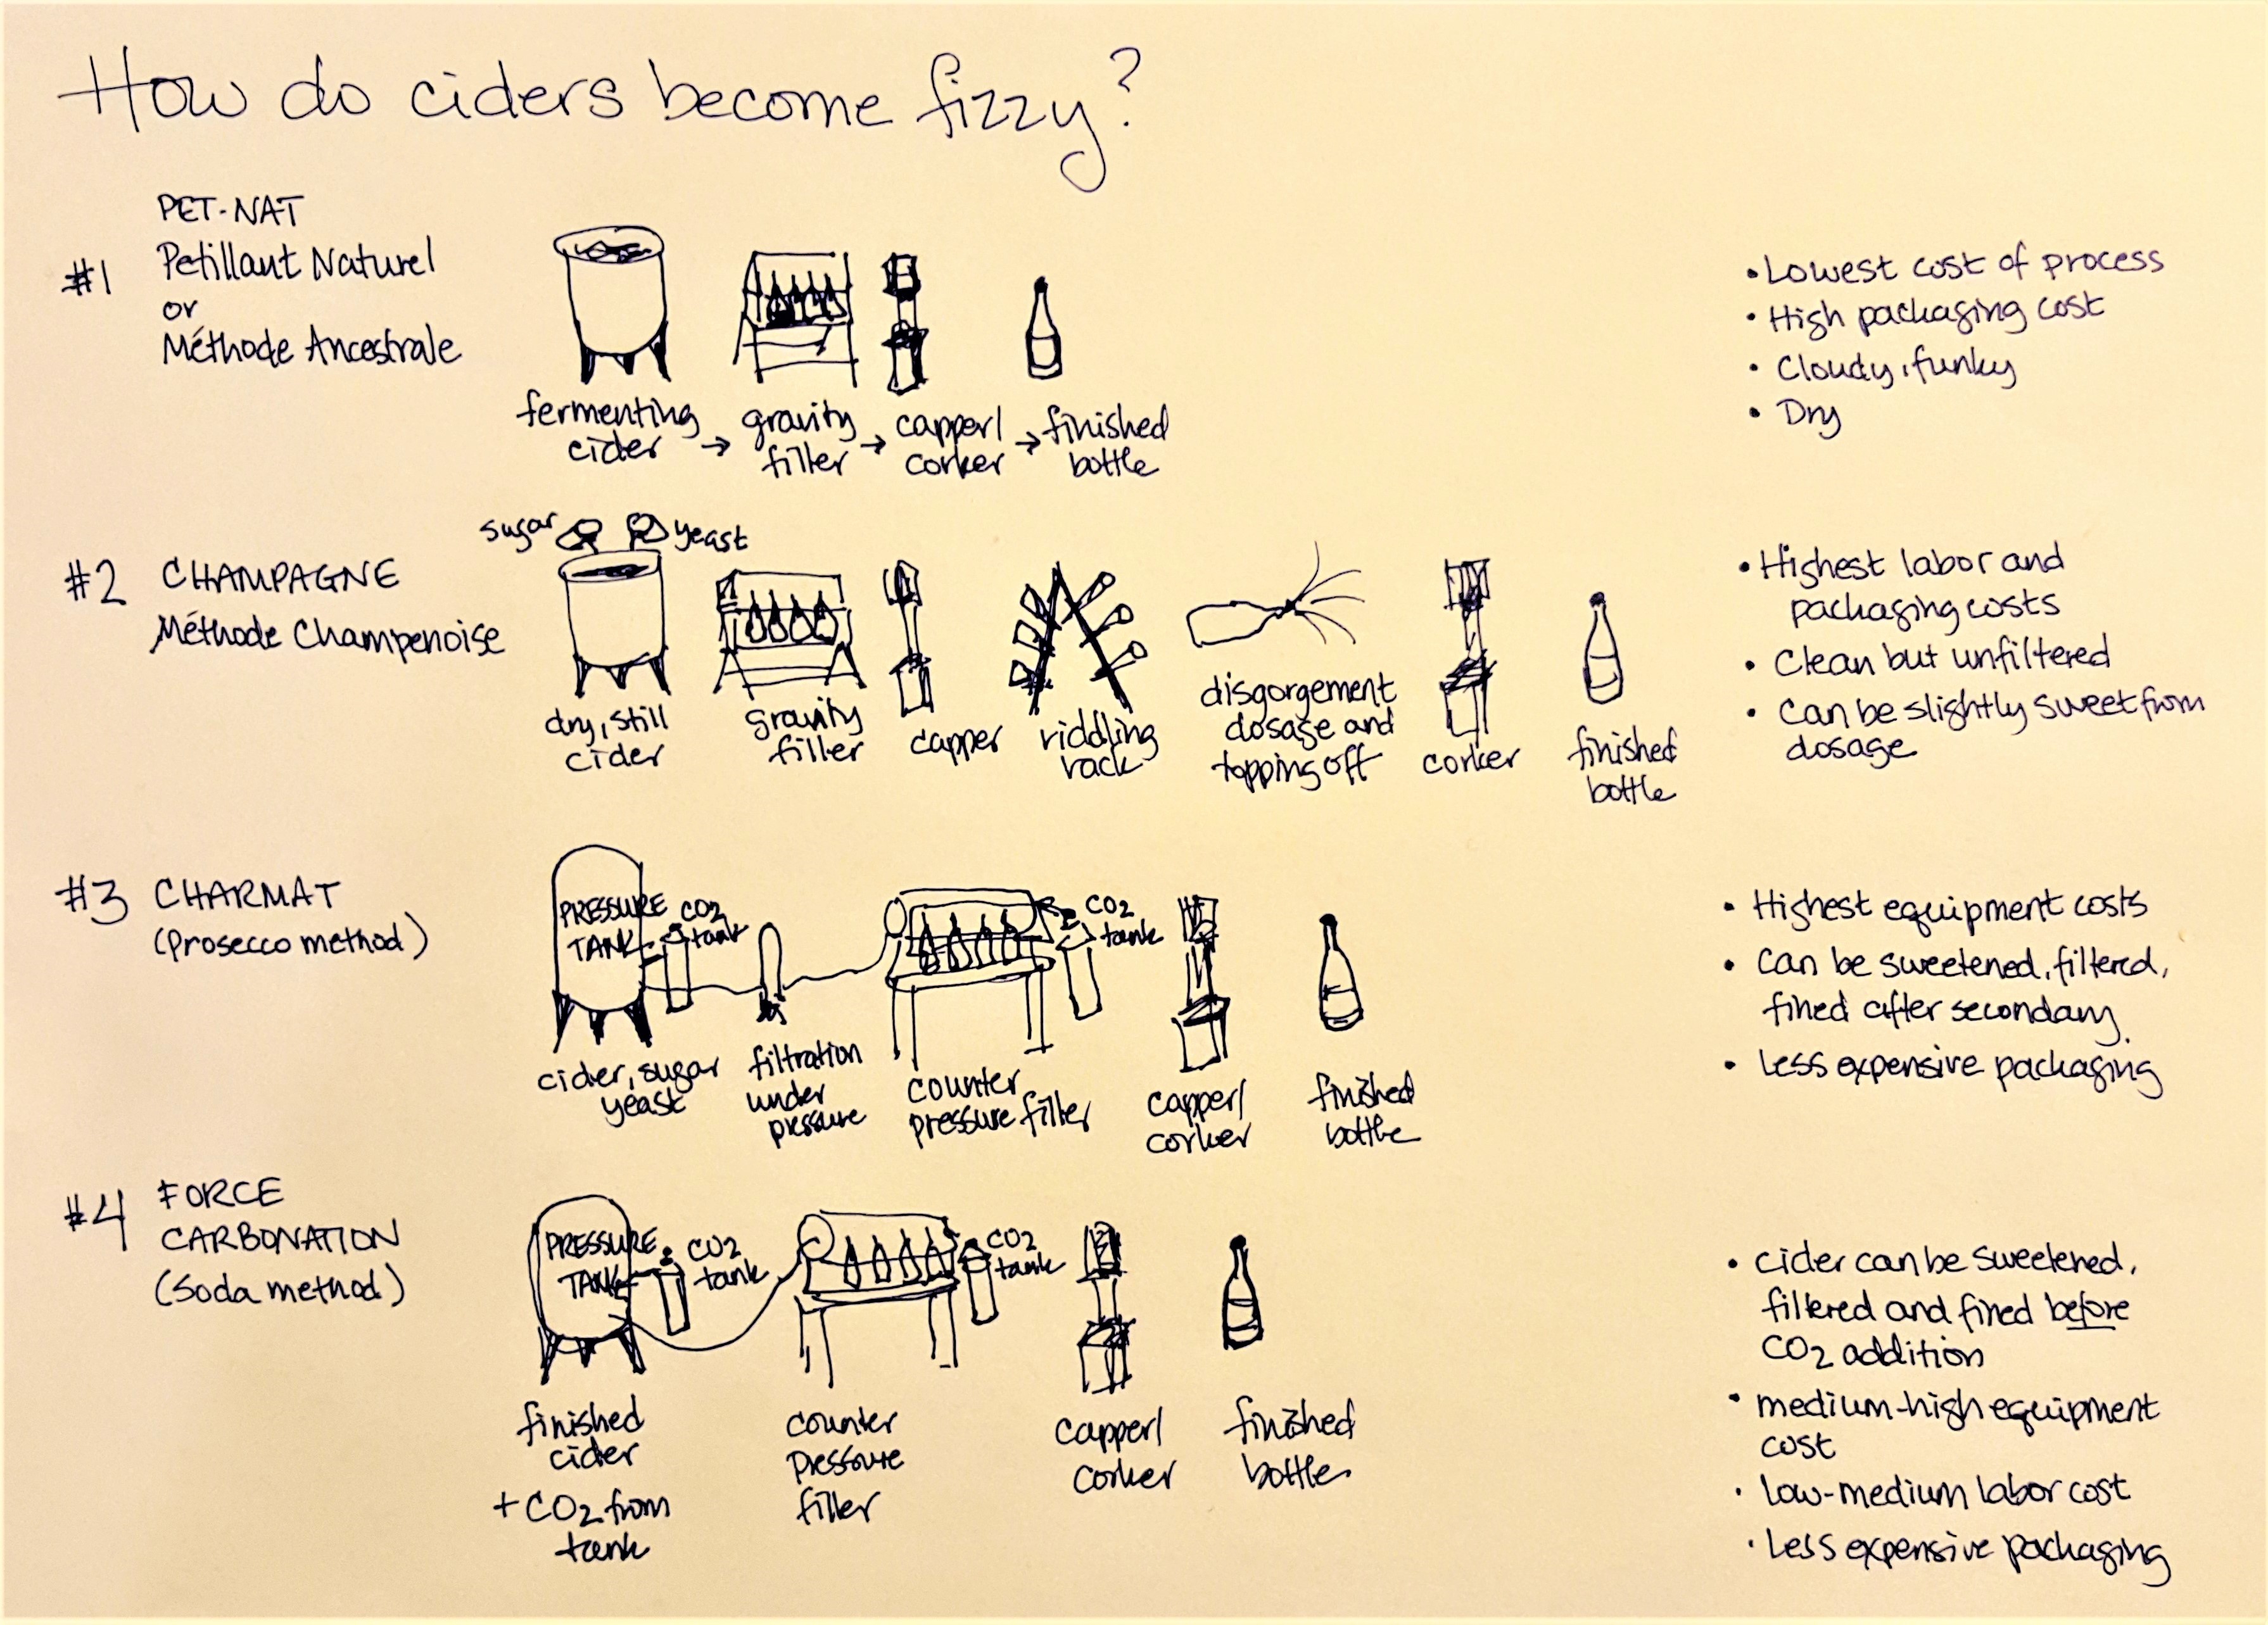 How do ciders become fizzy?
#1
PET-NAT
Petillant Naturel
or
Méthode Ancestrale
fermenting
cider
→
gravity
filler
→
capper/
corker
→
finished
bottle
• Lowest cost of process
• High packaging cost
• Cloudy, funky
• Dry
#2
CHAMPAGNE
Méthode Champenoise
sugar
yeast
dry, still
cider
gravity
filler
capper
riddling
rack
disgorgement
dosage and
topping off
corker
finished
bottle
• Highest labor and
packaging costs
• Clean but unfiltered
• Can be slightly sweet from
dosage
#3
CHARMAT
(Prosecco method)
PRESSURE
TANK
CO2
tank
CO2
tank
cider, sugar
yeast
filtration
under
pressure
counter
pressure filler
capper/
corker
finished
bottle
• Highest equipment costs
• Can be sweetened, filtered,
fined after secondary.
• Less expensive packaging
#4
FORCE
CARBONATION
(Soda method)
PRESSURE
TANK
CO2
tank
CO2
tank
finished
cider
+ CO2 from
tank
counter
pressure
filler
capper/
corker
finished
bottle
• cider can be sweetened,
filtered and fined before
CO2 addition
• medium-high equipment
cost
• low-medium labor cost
• Less expensive packaging